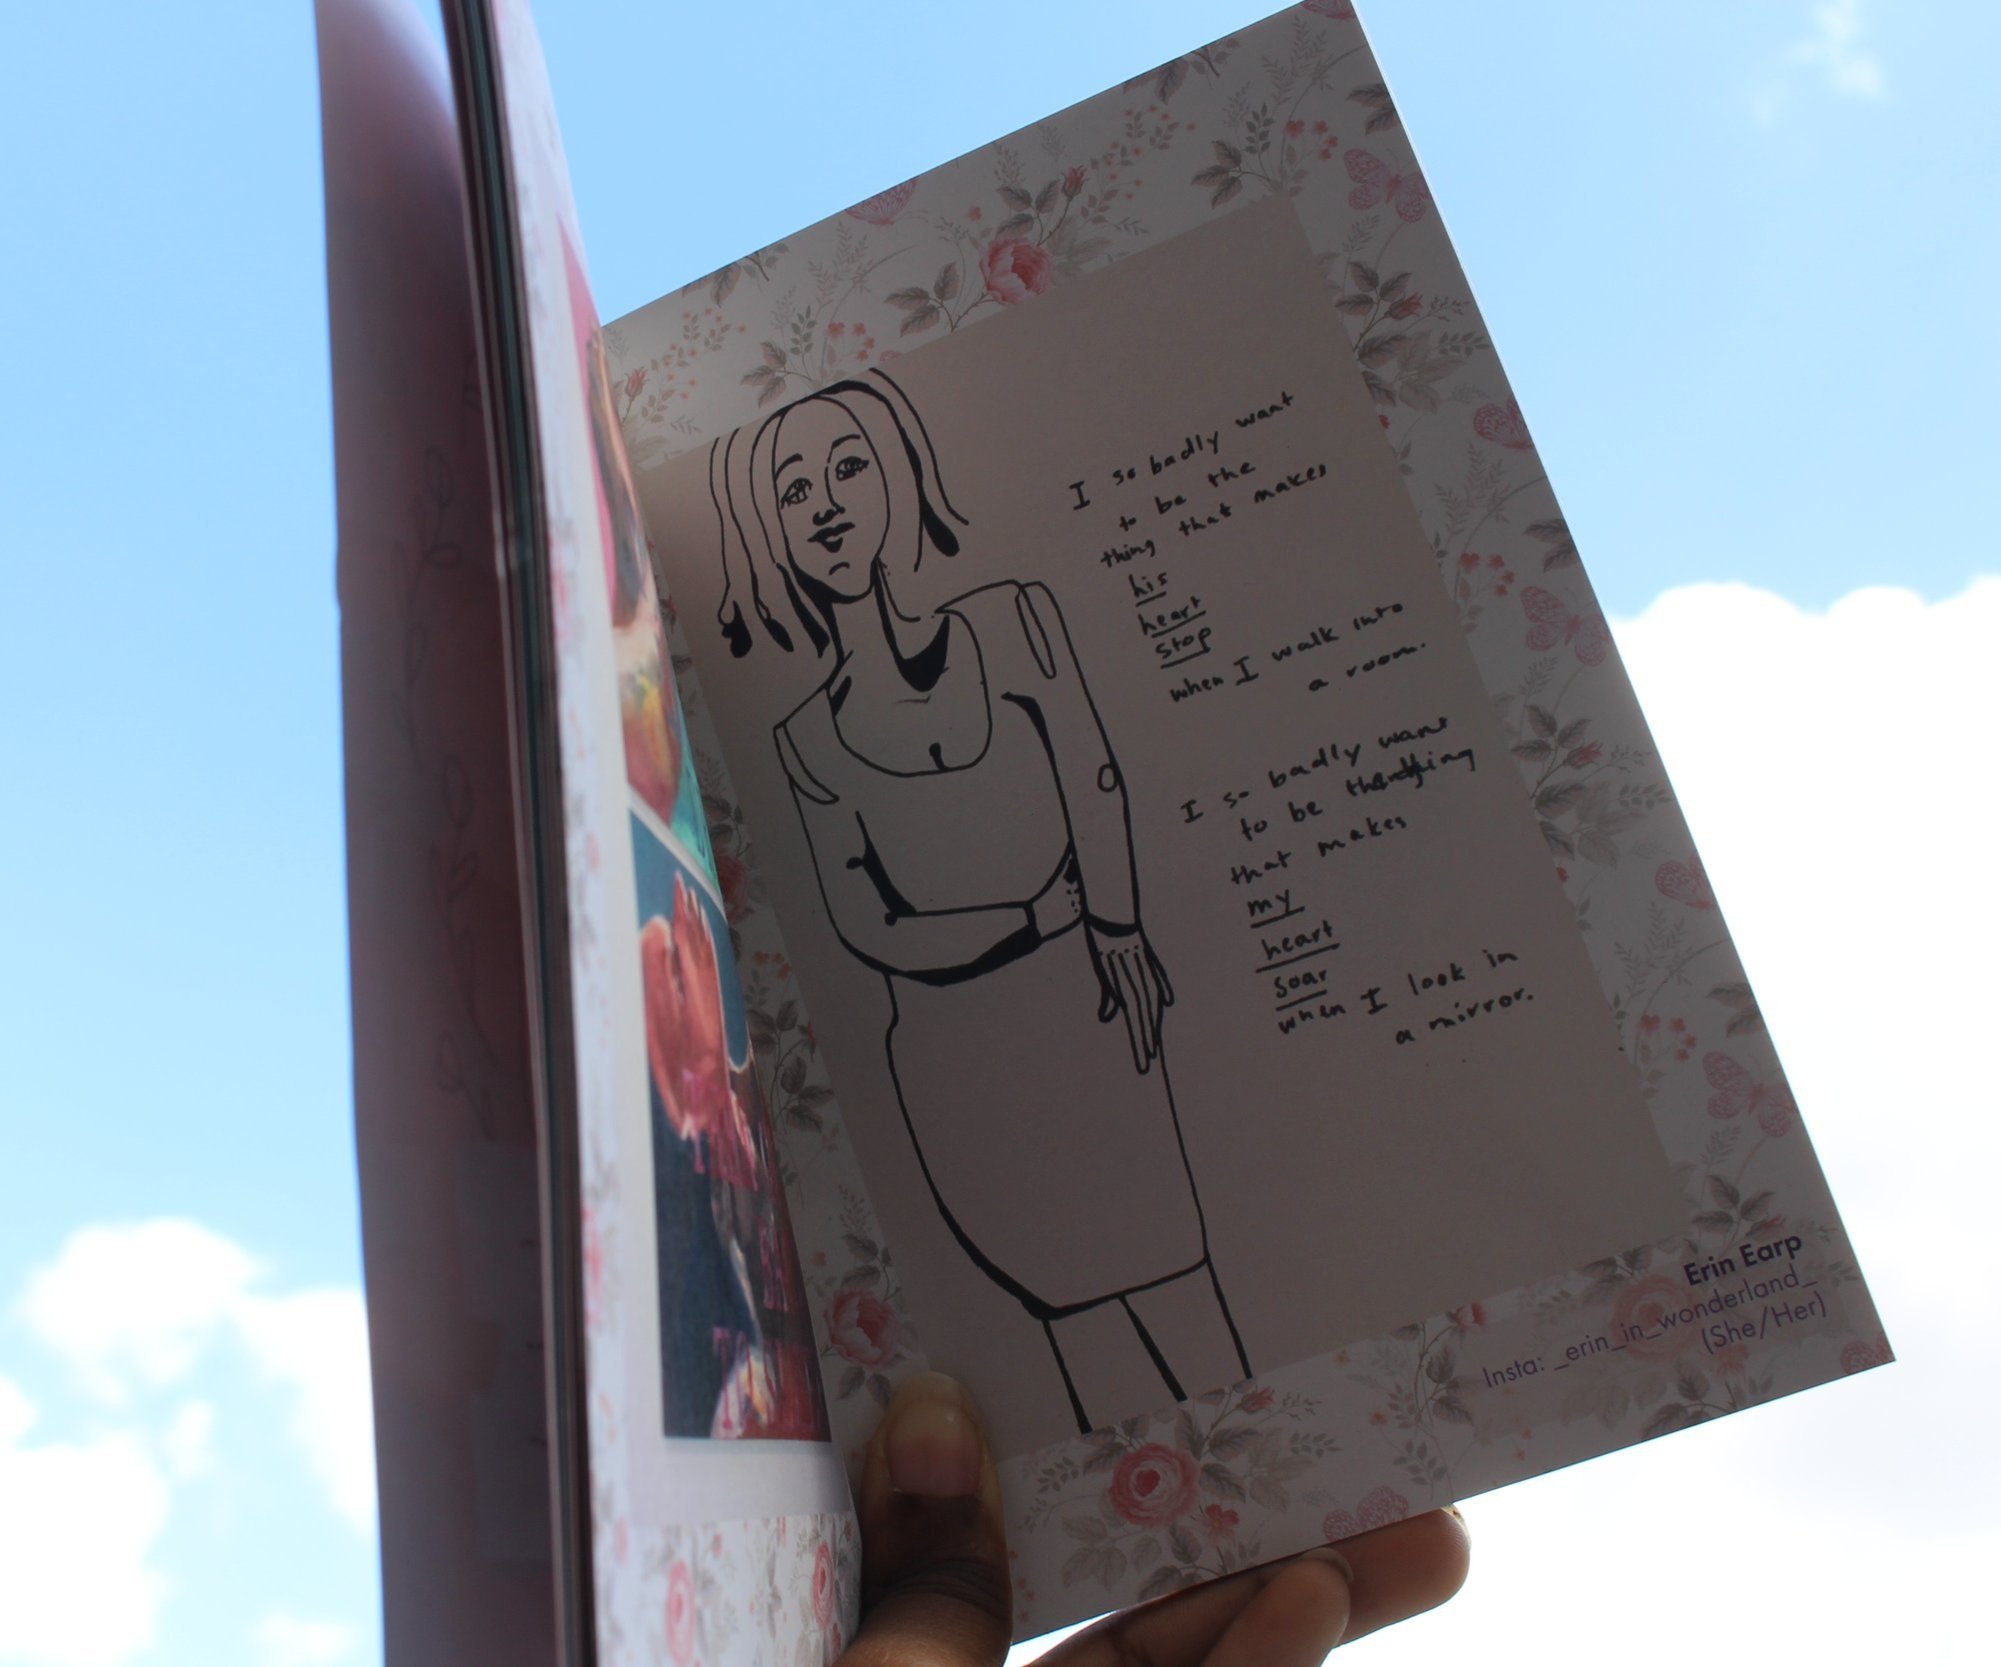 I so badly want
to be the
thing that makes
his
heart
stop
when I walk into
a room.
I so badly want
to be thing
that makes
my
heart
soar
when I look in
a mirror.
Erin Earp
Insta: _erin_in_wonderland_
(She/Her)